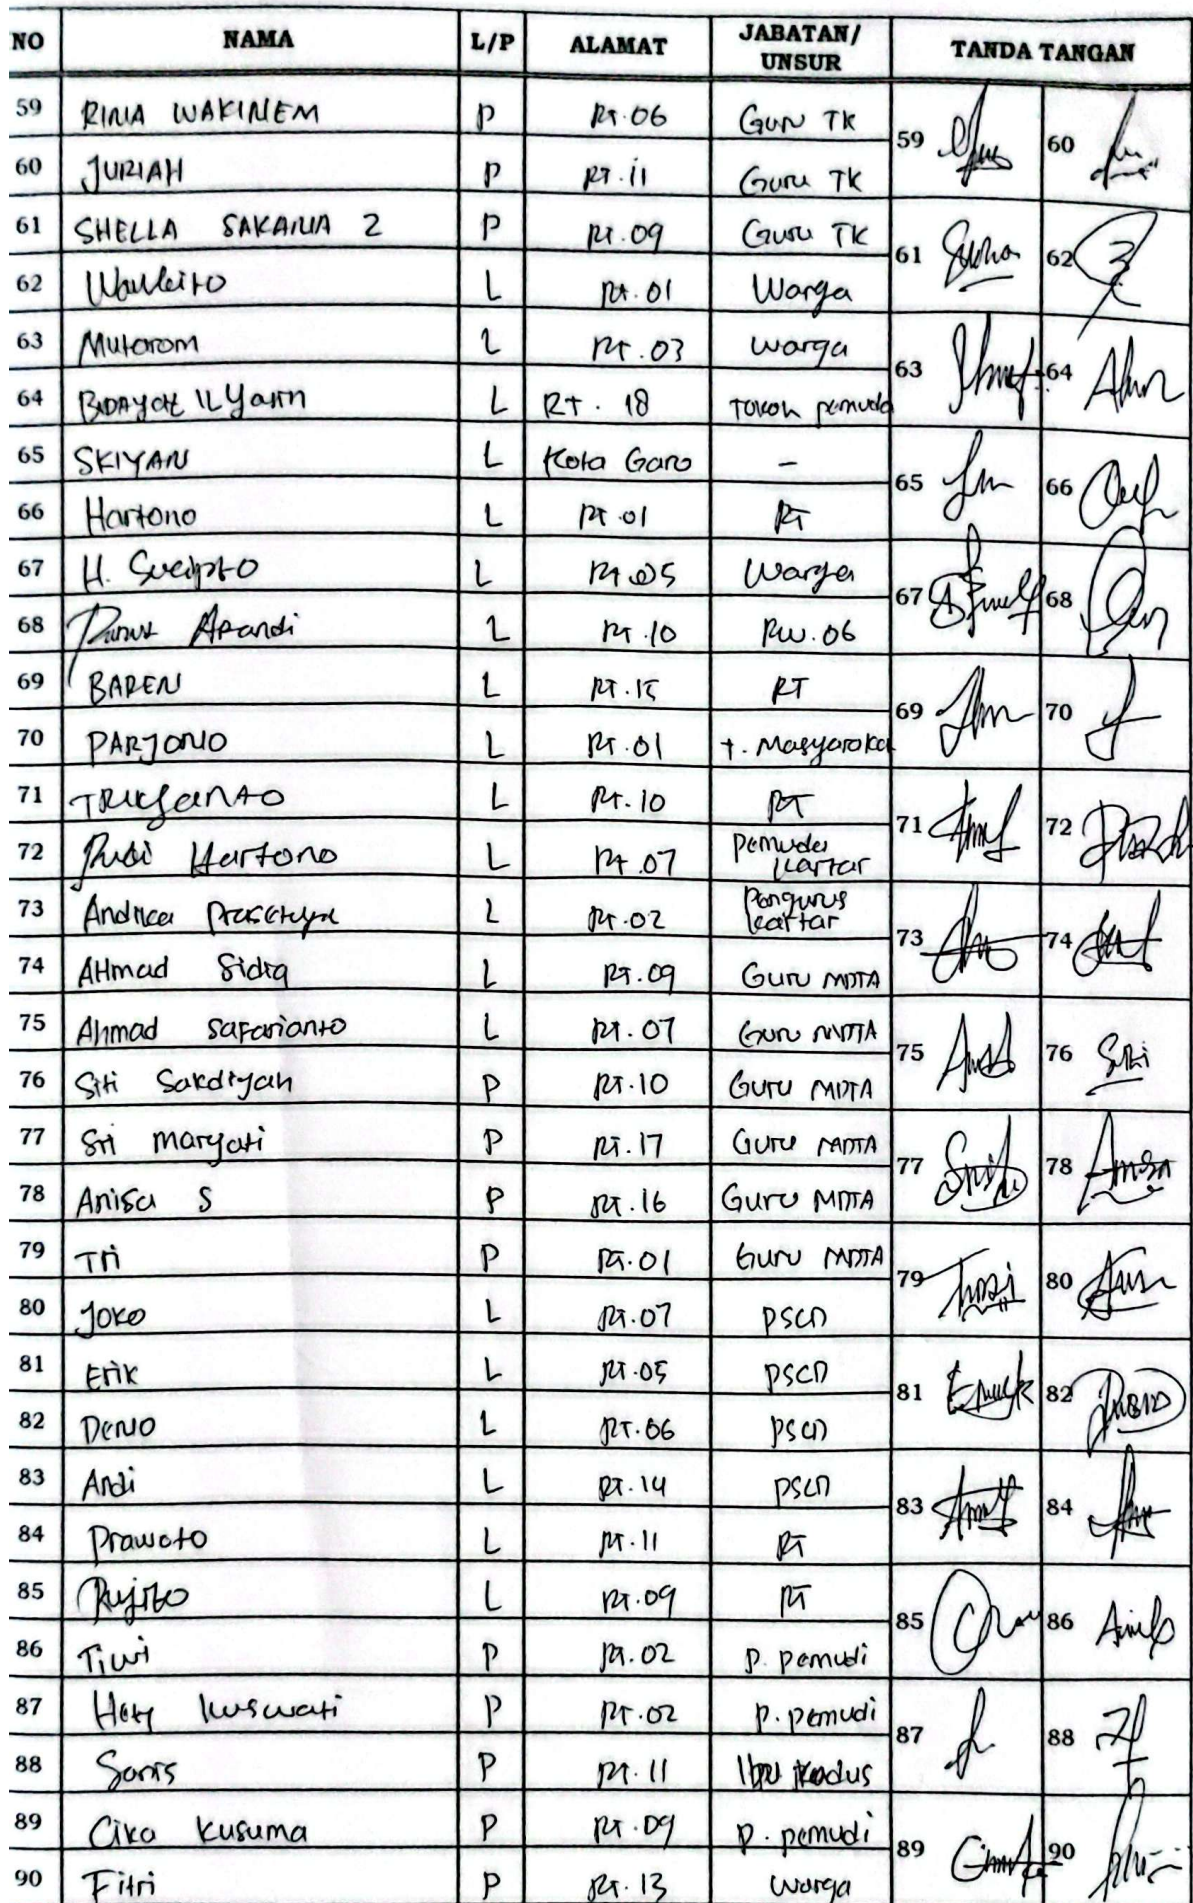 NO NAMA L/P ALAMAT JABATAN/ UNSUR TANDA TANGAN
59 RINA WAKINEM P RT.06 Guru TK 59
60 JURIAH P RT.11 Guru TK 60
61 SHELLA SAKANIA Z P RT.09 Guru TK 61
62 L RT.01 Warga 62
63 Mutorom L RT.03 warga 63
64 L RT. 18 Tokoh pemuda 64
65 SKIYAN L Kota Garo - 65
66 Hartono L RT.01 RT 66
67 H. Sucipto L RT.05 Warga 67
68 Apandi L RT.10 RW.06 68
69 BAREN L RT.15 RT 69
70 PARJONO L RT.01 t. Masyaraka 70
71 L RT.10 RT 71
72 Rudi Hartono L RT.07 Pemuda kartar 72
73 Andrea Prasetya L RT.02 Pengurus kartar 73
74 AHmad Sidiq L RT.09 Guru MDTA 74
75 Ahmad Safarianto L RT.07 Guru MDTA 75
76 Siti Sakdiyah P RT.10 Guru MDTA 76
77 Sri maryati P RT.17 Guru MDTA 77
78 Anisa S P RT.16 Guru MDTA 78
79 Tri P RT.01 Guru MDTA 79
80 Joko L RT.07 PSCD 80
81 Erik L RT.05 PSCD 81
82 Deno L RT.06 PSCD 82
83 Andi L RT.14 PSCD 83
84 Prawoto L RT.11 RT 84
85 Pujito L RT.09 RT 85
86 Tiwi P RT.02 P. pemudi 86
87 Hety kuswati P RT.02 P. pemudi 87
88 Sanis P RT.11 Ibu kadus 88
89 Cika kusuma P RT.09 P. pemudi 89
90 Fitri P RT.13 warga 90